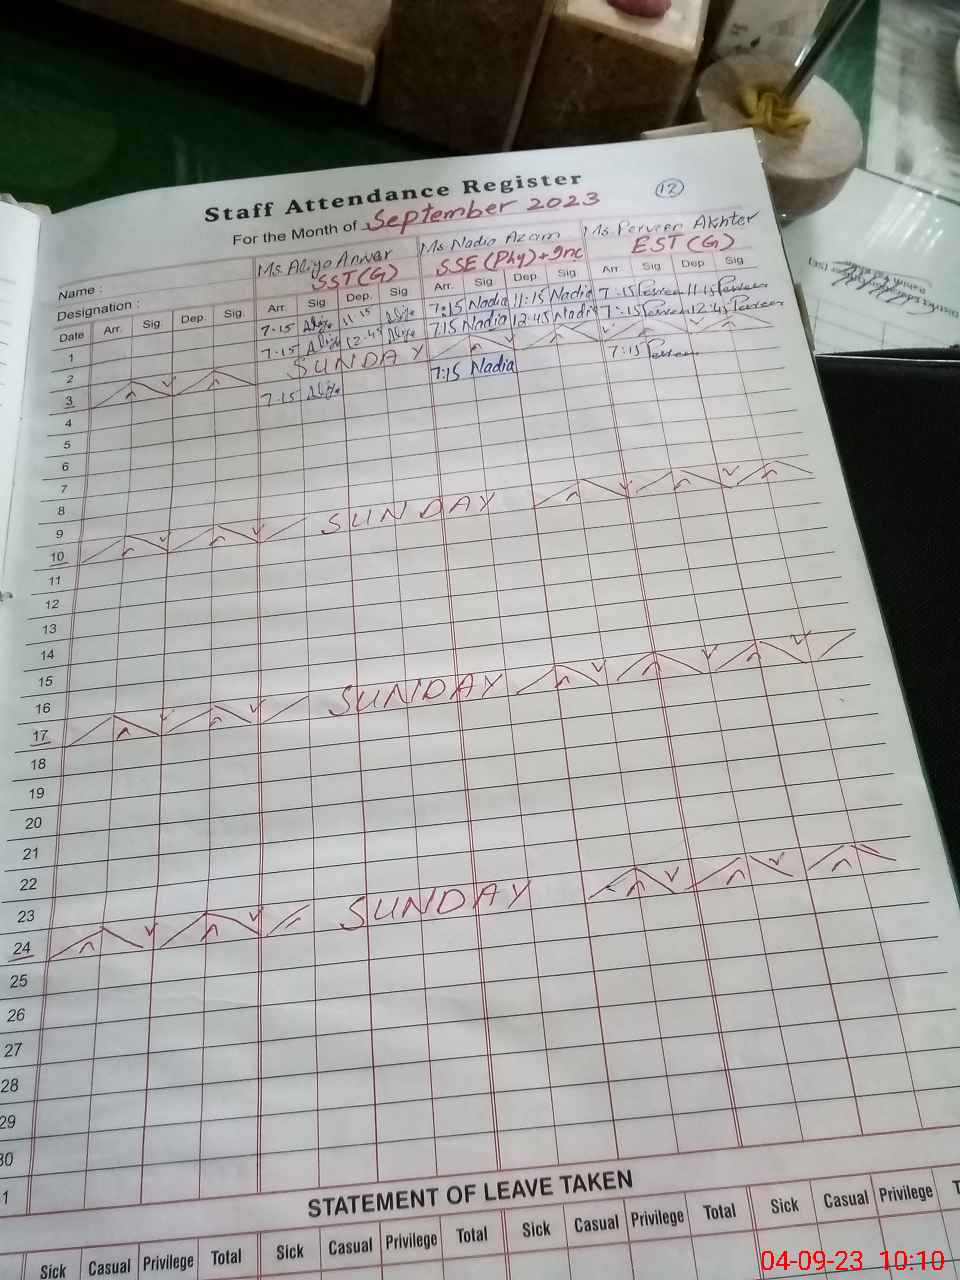 Staff Attendance Register
12
For the Month of September 2023
Name : Ms. Aliya Anwar Ms. Nadia Azam Ms. Perveen Akhter
Designation : SST(G) SSE (Phy)+Inc EST(G)
Date Arr. Sig. Dep. Sig. Arr. Sig Dep. Sig Arr. Sig. Dep. Sig. Arr. Sig Dep Sig
1 7.15 11.15 7:15 Nadia 11:15 Nadia 7:15 Perveen 11:15 Perveen
2 7.15 12.45 7:15 Nadia 12:45 Nadia 7:15 Perveen 12:45 Perveen
3 SUNDAY
4 7.15 7:15 Nadia 7:15 Perveen
5
6
7
8
9
10 SUNDAY
11
12
13
14
15
16
17 SUNDAY
18
19
20
21
22
23
24 SUNDAY
25
26
27
28
29
30
1
STATEMENT OF LEAVE TAKEN
Sick Casual Privilege Total Sick Casual Privilege Total Sick Casual Privilege Total Sick Casual Privilege
04-09-23 10:10